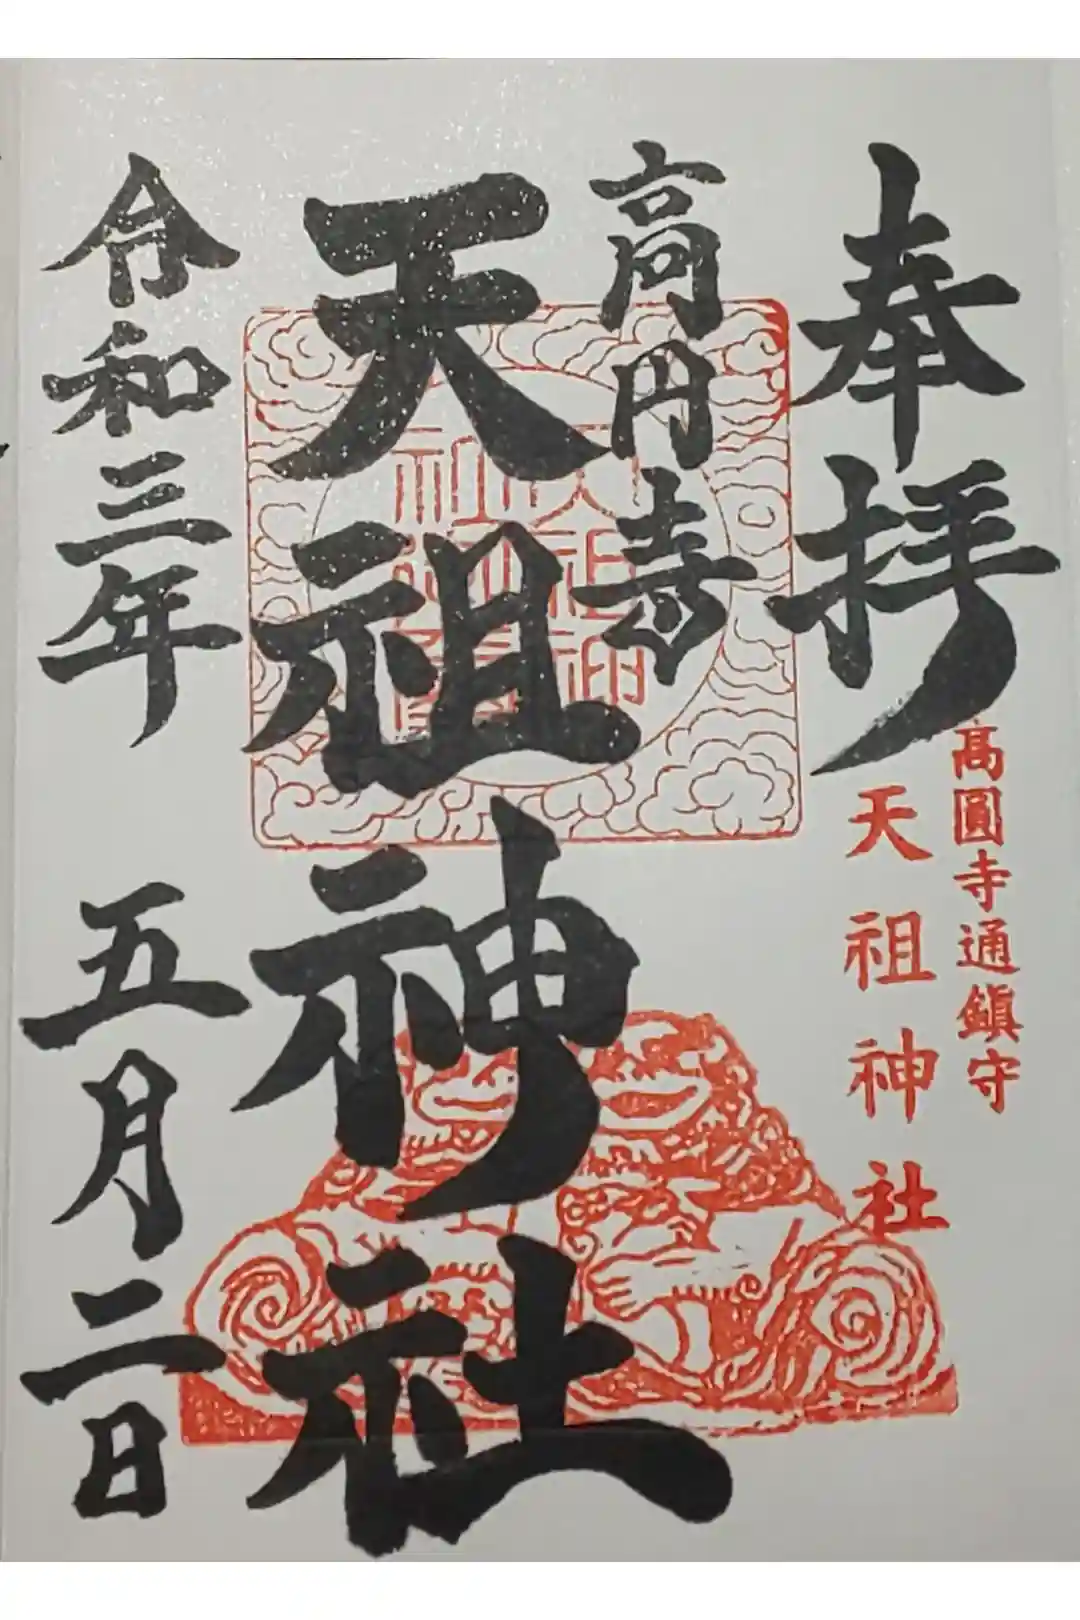 奉拝
高圓寺通鎮守
天祖神社
高円寺
天祖神社
令和三年 五月二日